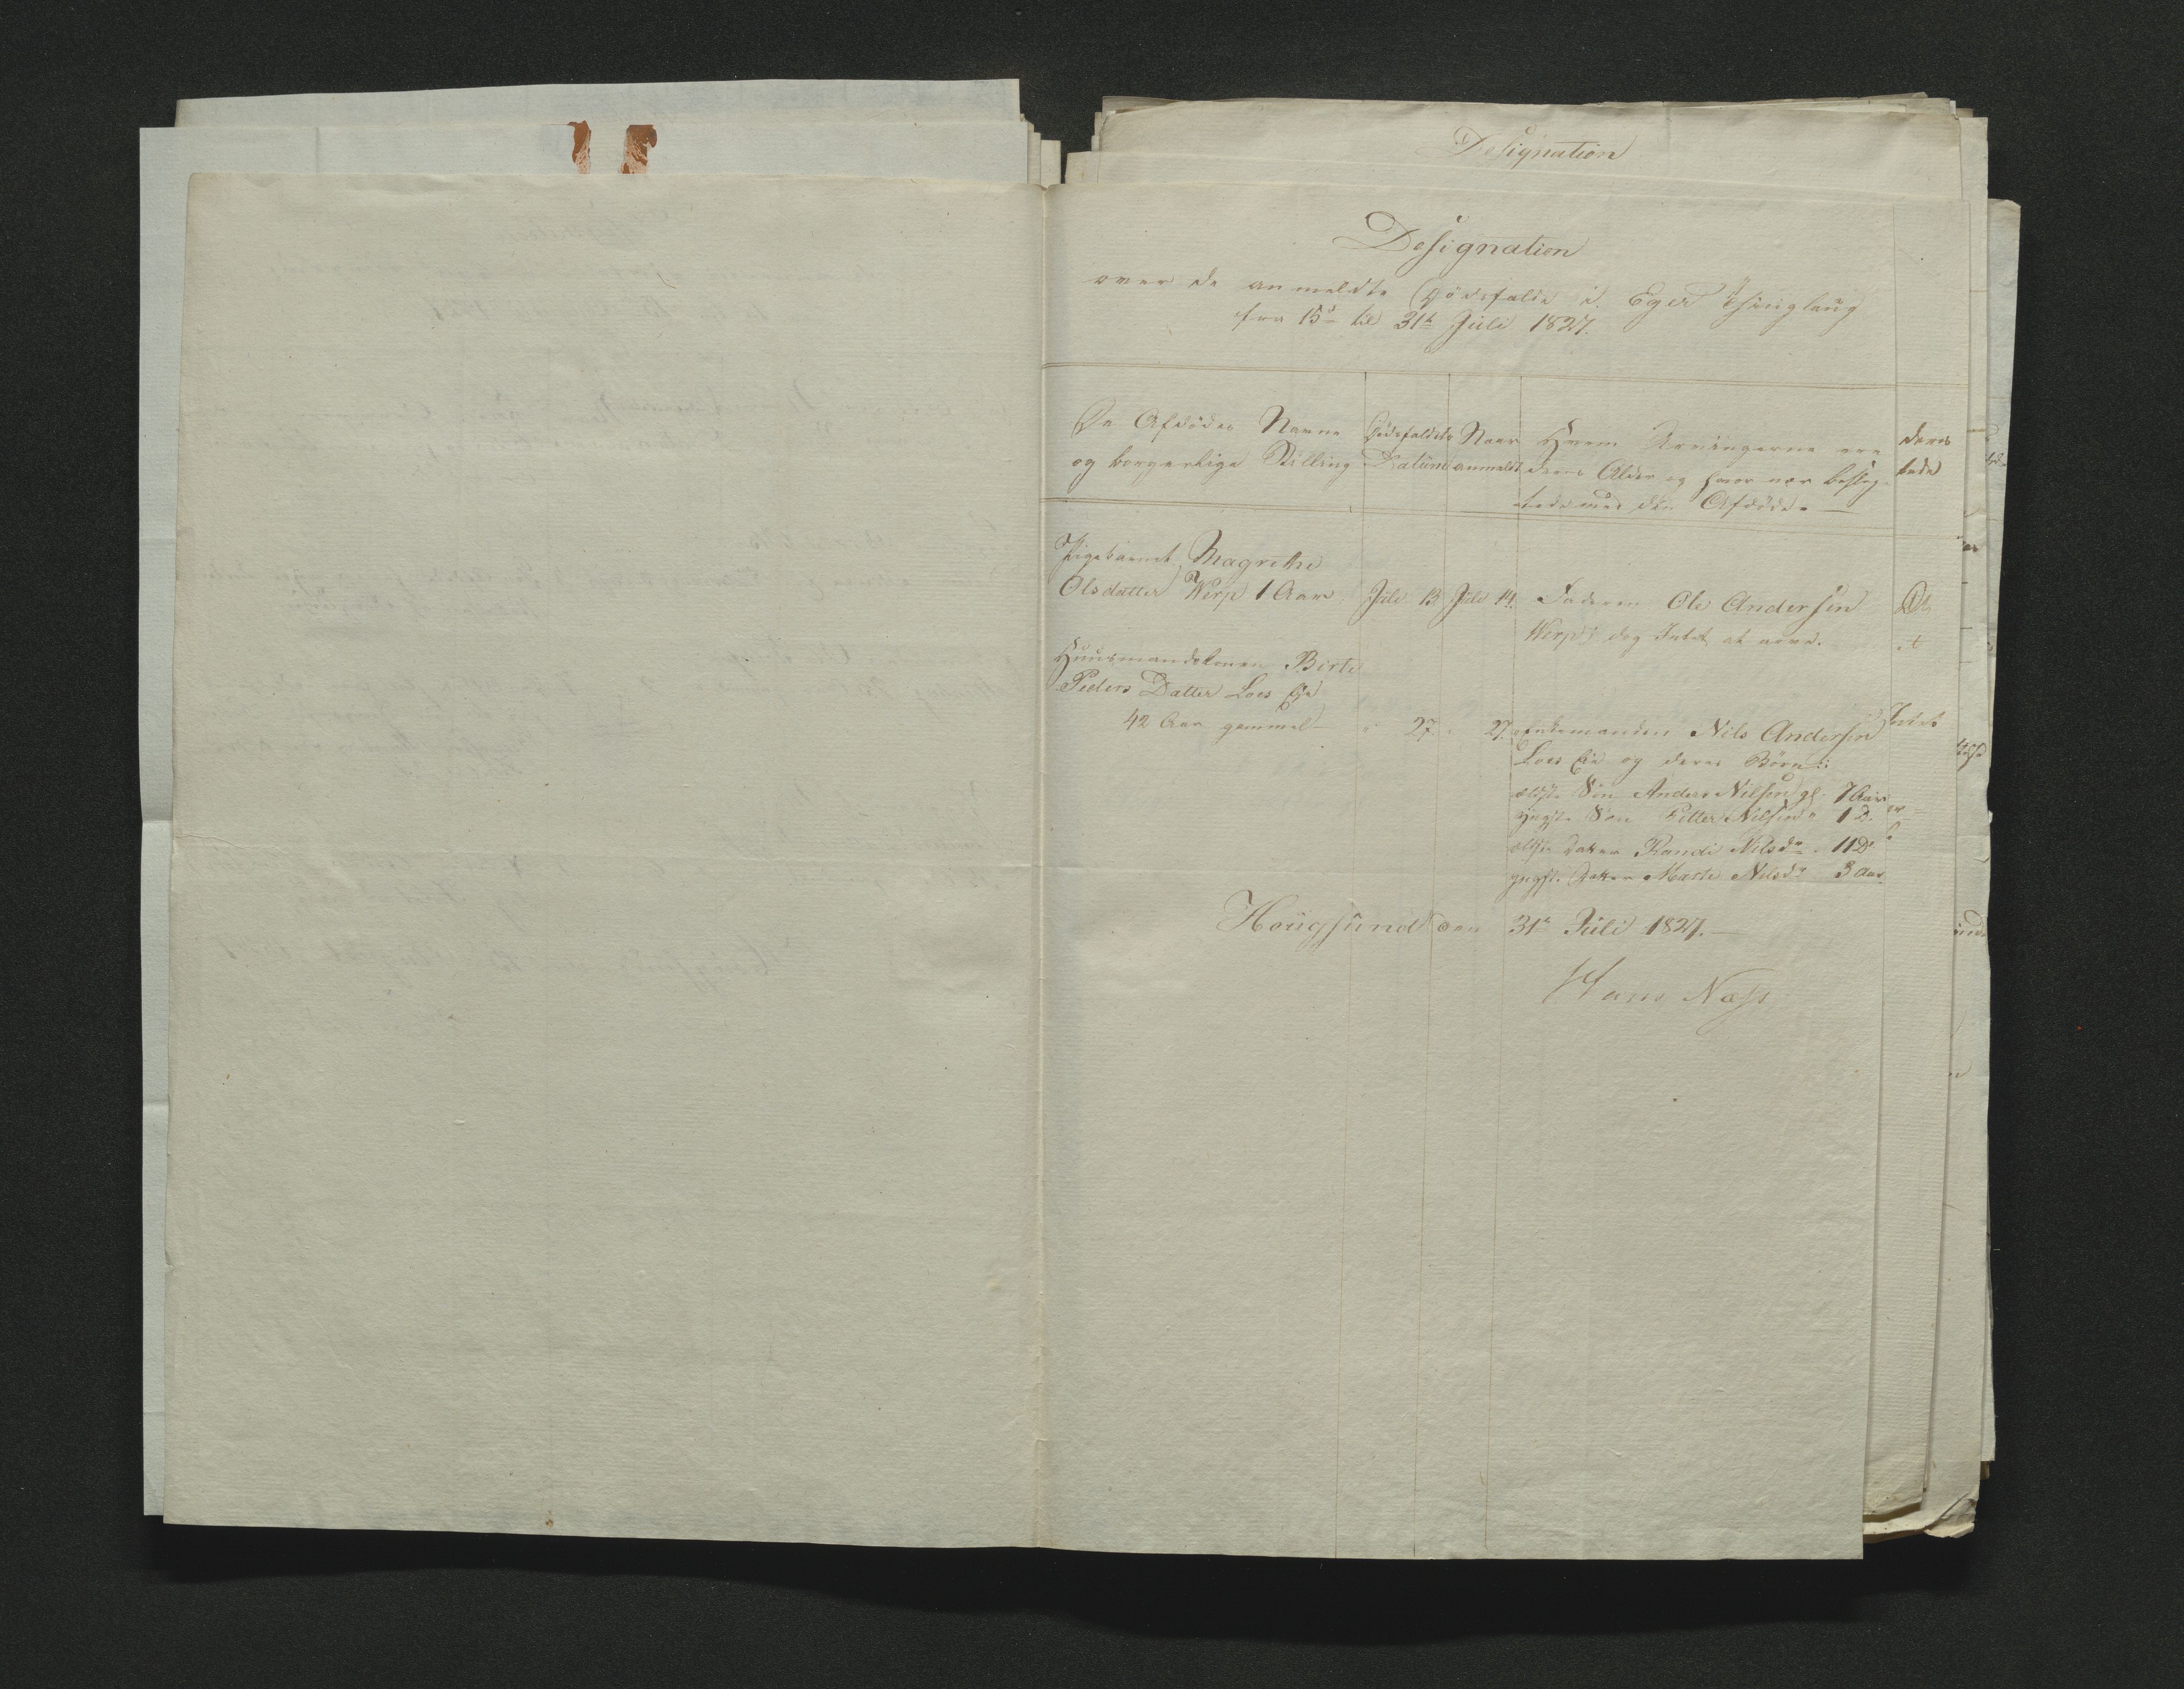 Designation
Designation
over de anmeldte Dödsfalde i Eger Thinglaug
fra 15de til 31te Juli 1827.
De Afdödes Navne
og borgerlige Stilling
Dödsfaldets
Datum
Naar
anmeldt
Hvem Arvingerne ere
deres Alder og hvor nær beslæg-
tede med den Afdöde.
deres
Pigebarnet Magrethe
Olsdatter Werp 1 Aar Juli 13 Juli 14. Faderen Ole Andersen
Werp, dog Intet at arve.
Huusmandskonen Birte
Peders Datter Loes Eie
42 Aar gammel " 27 " 27. Enkemanden Nils Andersen
Loes Eie og deres Börn:
ældste Sön Anders Nilsen gl. 7 Aar
yngste Sön Petter Nilsen " 1 D.
ældste Datter Randi Nilsdr " 11 D.
yngste Datter Marte Nilsdr 3 Aar
Hougsund den 31te Juli 1827.
Hans Næss